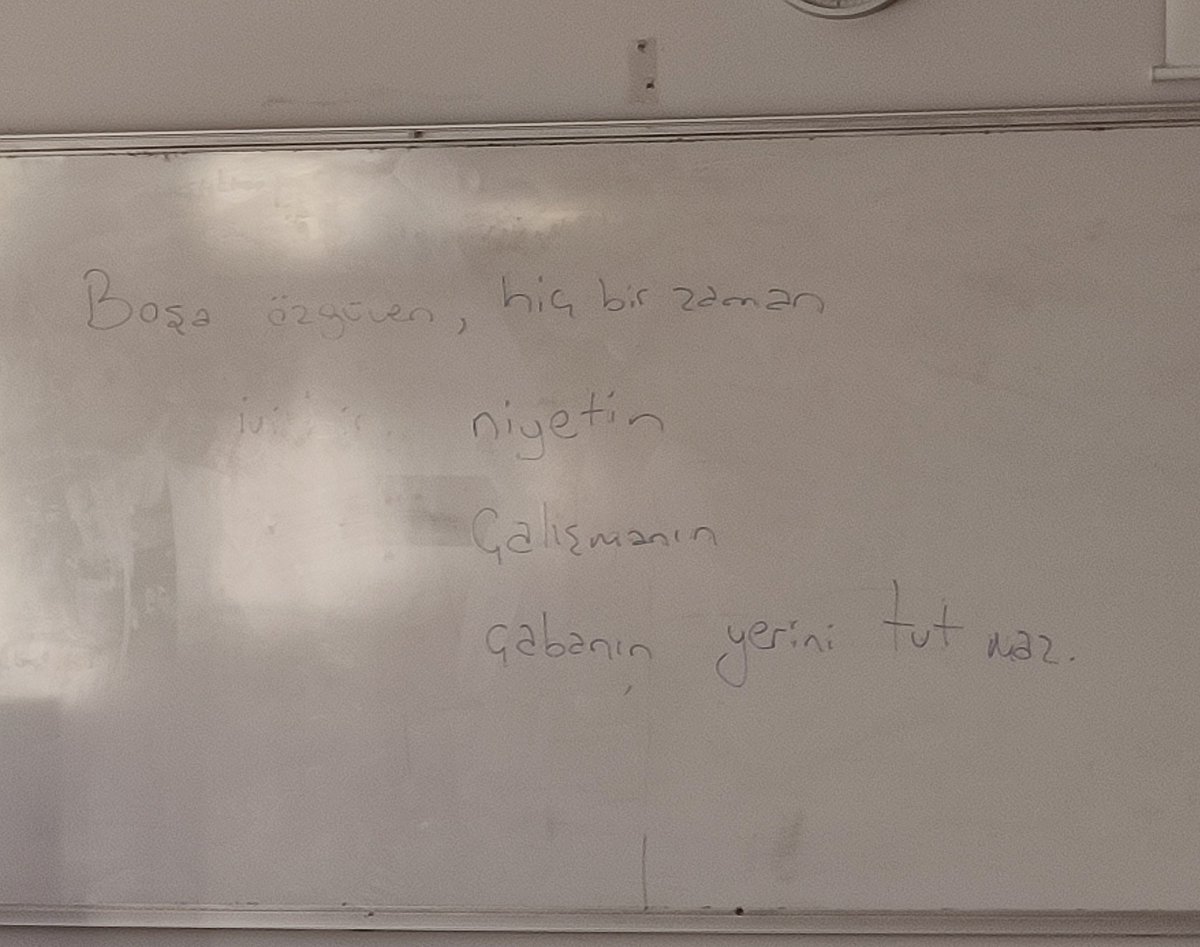 Boşa özgüven, hiç bir zaman
niyetin
Çalışmanın
çabanın yerini tutmaz.